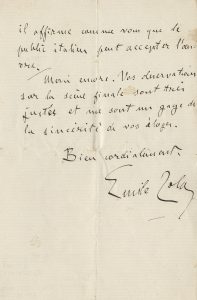 il affirme comme vous que le
public italien peut accepter l'œu-
vre.
Merci encore. Vos observations
sur la scène finale sont très
justes et me sont un gage de
la sincérité de vos éloges.
Bien cordialement.
Emile Zola